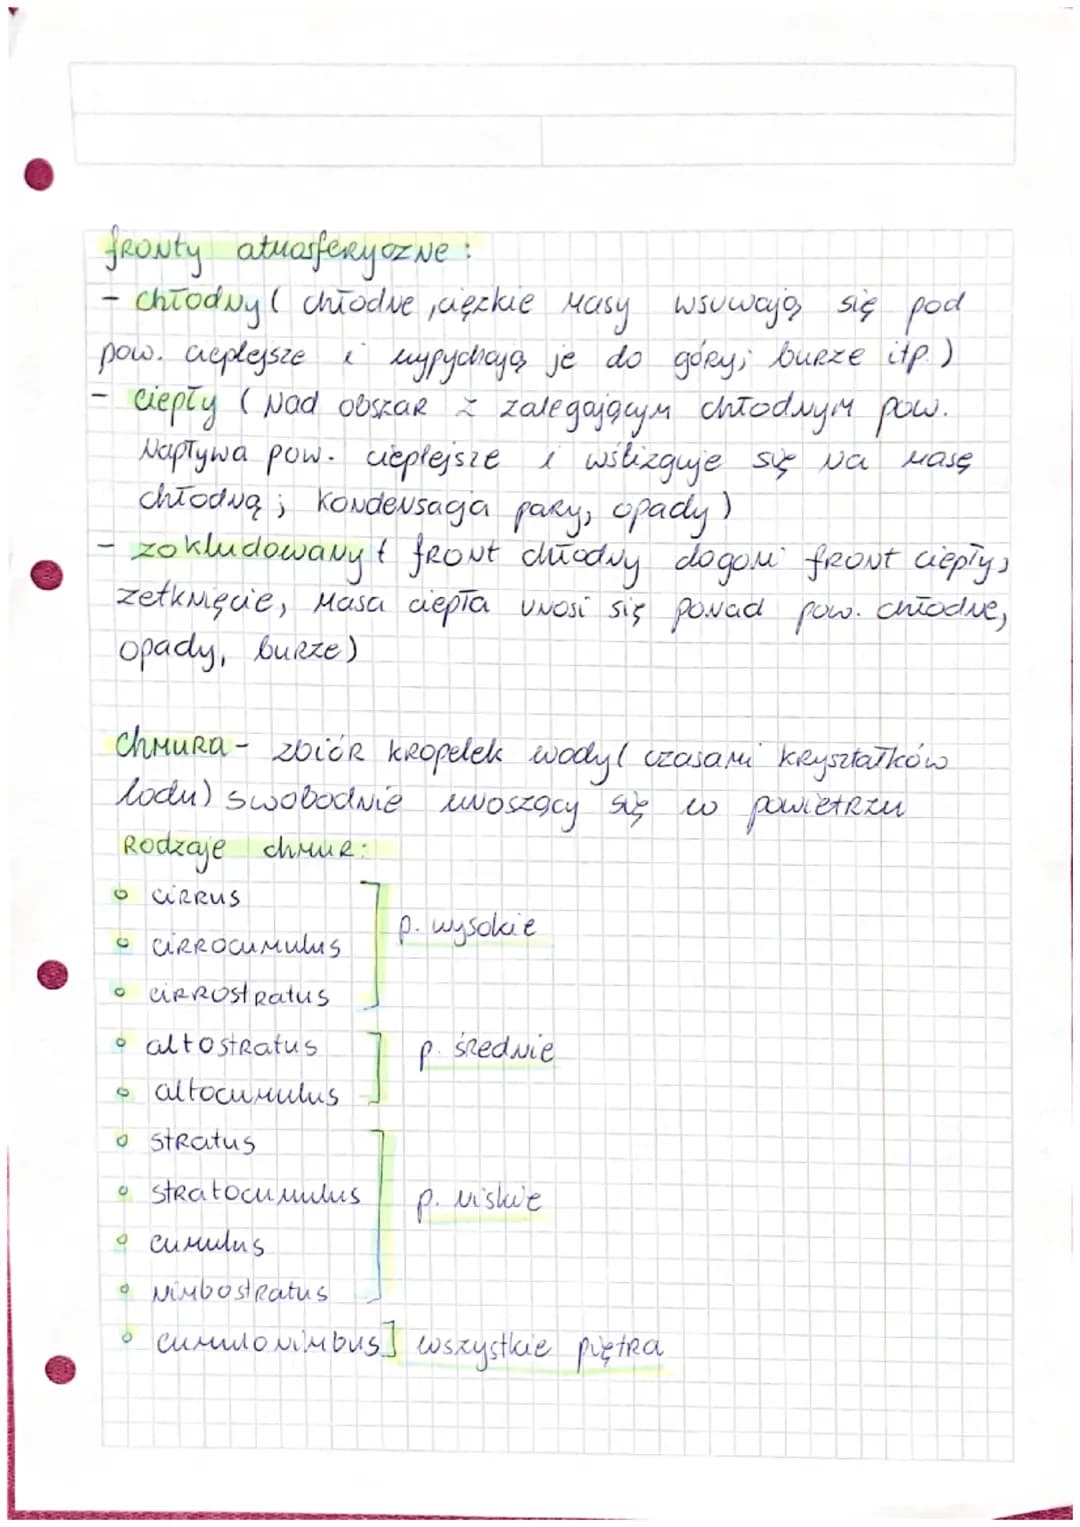 fronty atmosferyczne:
- chłodny ( chłodne, ciężkie masy wsuwają się pod
pow. cieplejsze i wypychają je do góry; burze itp.)
- ciepły ( nad obszar z zalegającym chłodnym pow.
napływa pow. cieplejsze i wślizguje się na masę
chłodną; kondensacja pary, opady)
- zokludowany ( front chłodny dogoni front ciepły,
zetknięcie, masa ciepła unosi się ponad pow. chłodne,
opady, burze)
chmura - zbiór kropelek wody ( czasami kryształków
lodu) swobodnie unoszący się w powietrzu
Rodzaje chmur:
○ cirrus
p. wysokie
○ cirrocumulus
○ cirrostratus
○ altostratus
p. średnie
○ altocumulus
○ stratus
○ stratocumulus
p. niskie
○ cumulus
○ nimbostratus
○ cumulonimbus] wszystkie piętra